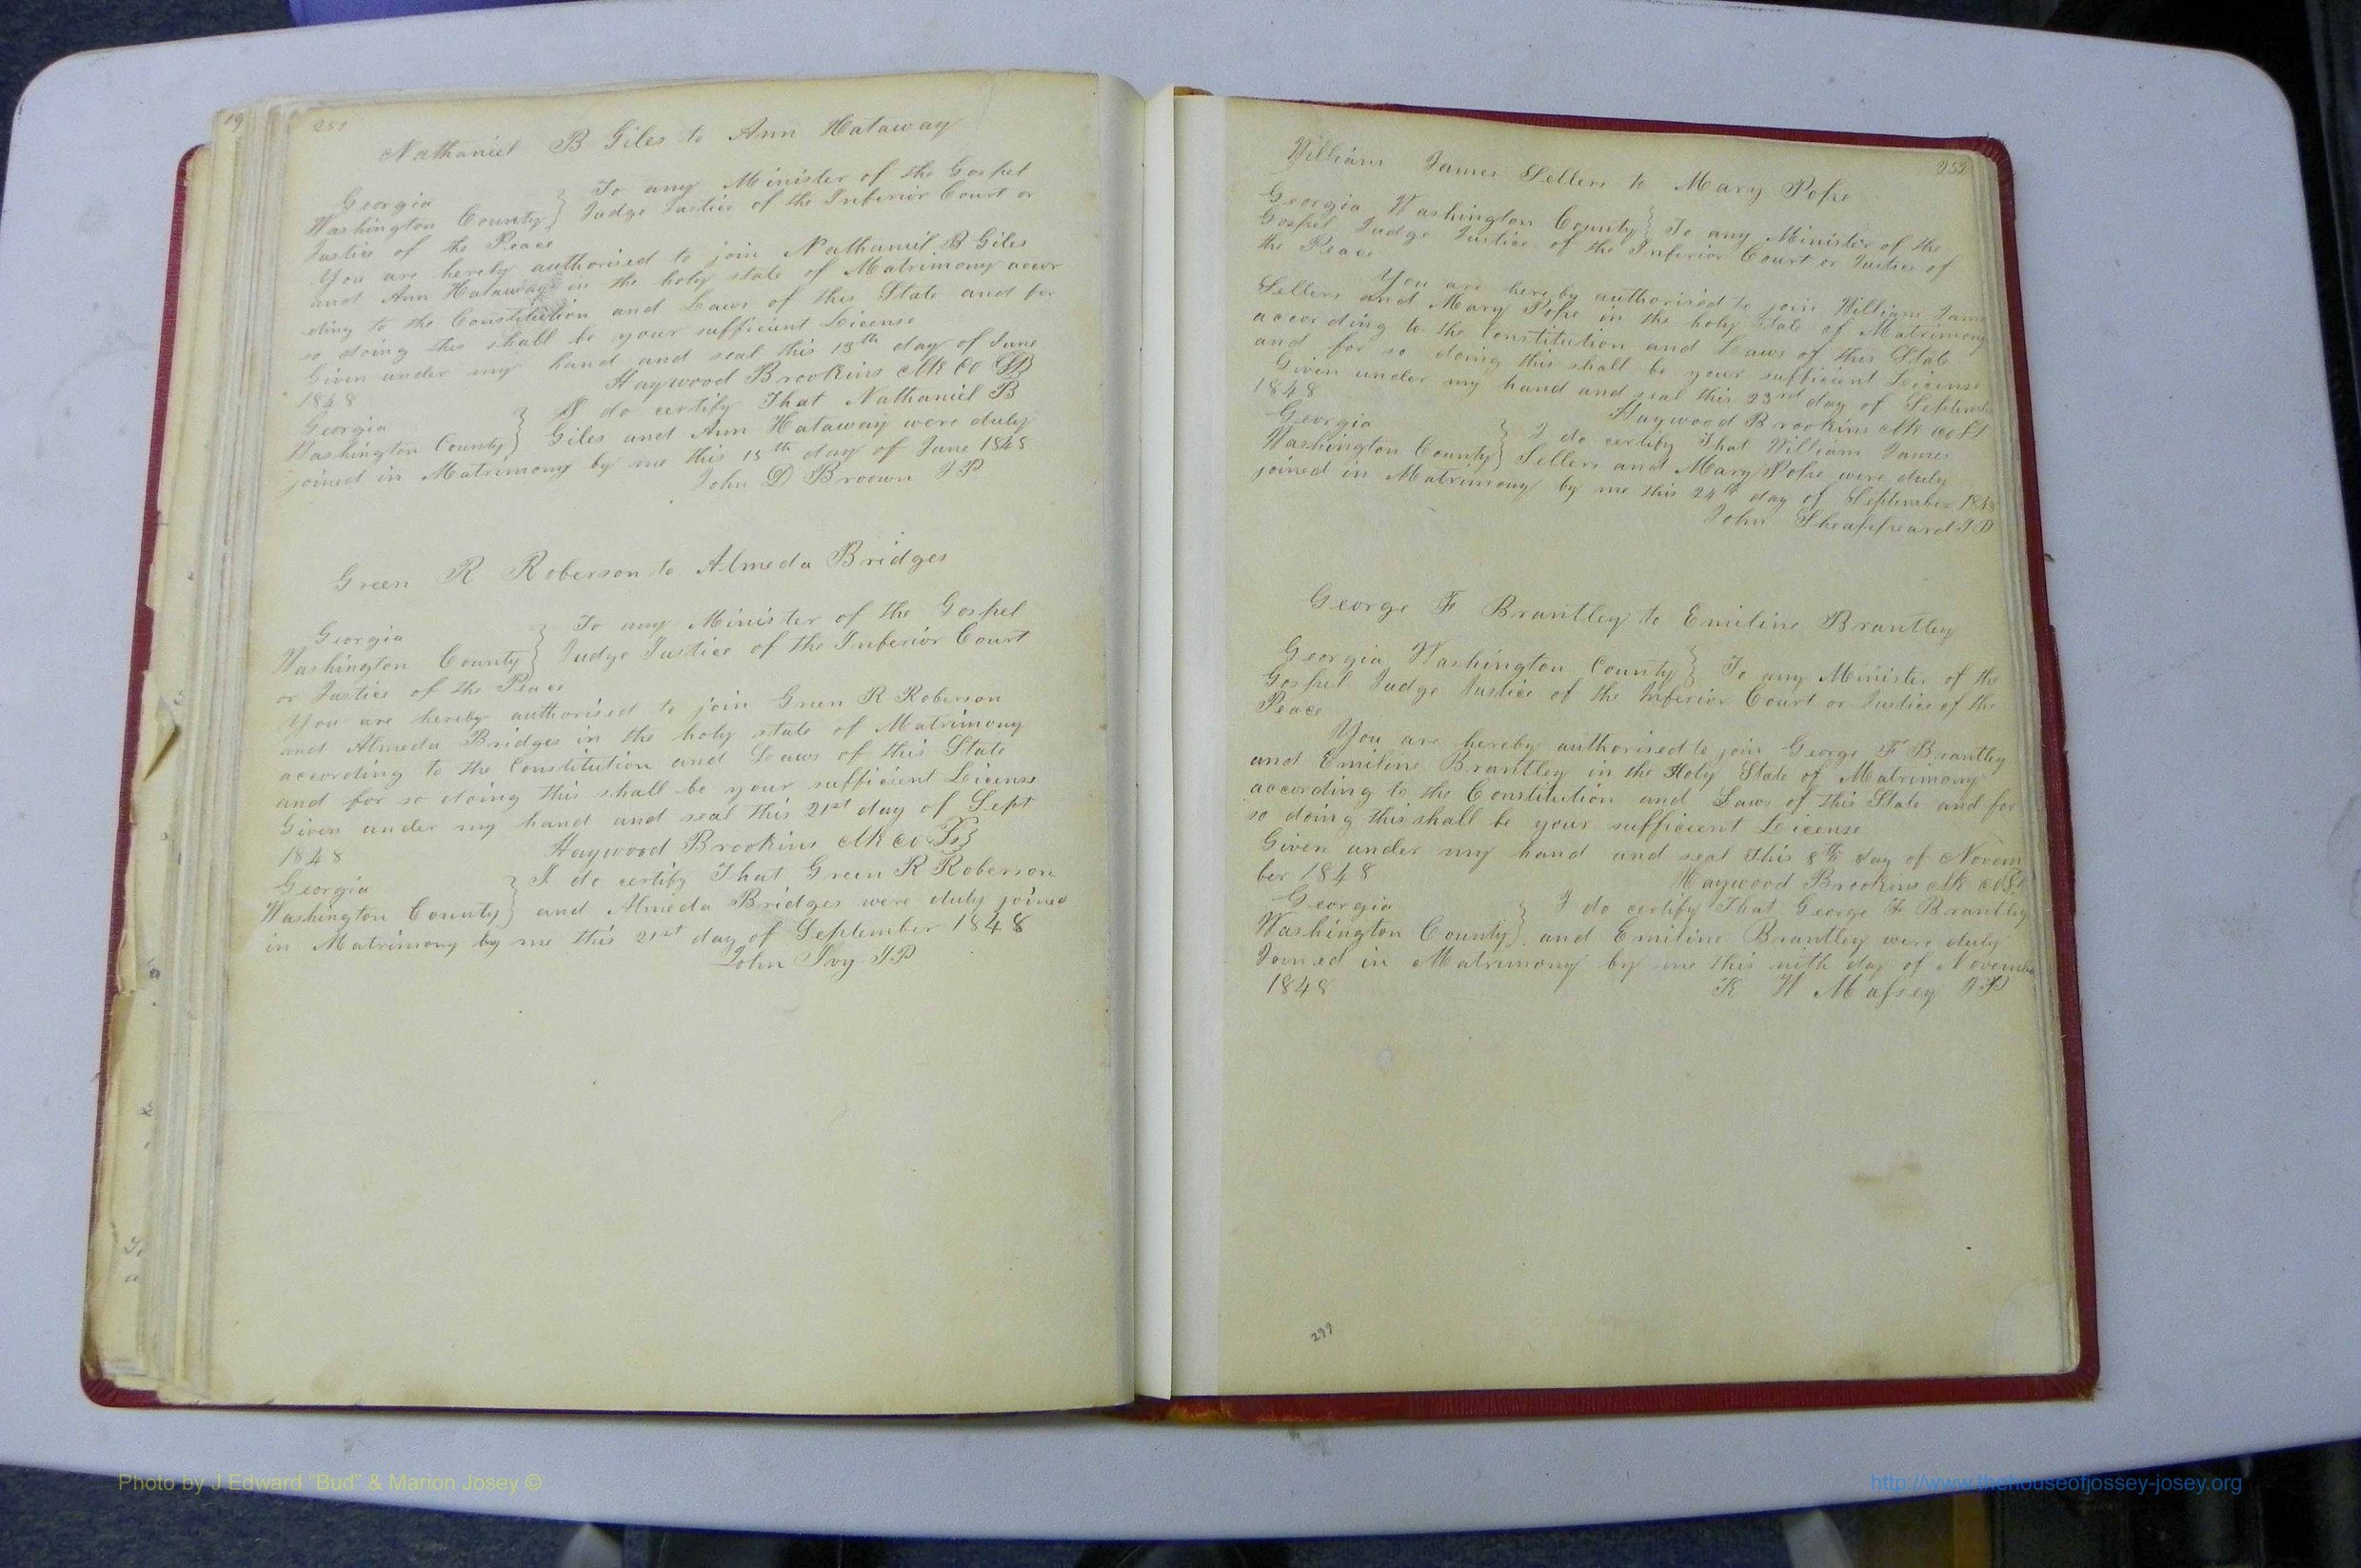 19
251
Nathaniel B Giles to Ann Hataway
Georgia
Washington County } To any Minister of the Gospel
Judge Justice of the Inferior Court or
Justice of the Peace
You are hereby authorised to join Nathaniel B Giles
and Ann Hataway in the holy state of Matrimony accor
ding to the Constitution and Laws of this State and for
so doing this shall be your sufficient License
Given under my hand and seal this 13th day of June
1848 Haywood Brookins Clk CO
Georgia
Washington County } I do certify That Nathaniel B
Giles and Ann Hataway were duly
joined in Matrimony by me this 15th day of June 1848
John D Broown J P
Green R Roberson to Almeda Bridges
Georgia
Washington County } To any Minister of the Gospel
Judge Justice of the Inferior Court
or Justice of the Peace
You are hereby authorised to join Green R Roberson
and Almeda Bridges in the holy state of Matrimony
according to the Constitution and Laws of this State
and for so doing this shall be your sufficient License
Given under my hand and seal this 21st day of Sept
1848 Haywood Brookins Clk CO
Georgia
Washington County } I do certify That Green R Roberson
and Almeda Bridges were duly joined
in Matrimony by me this 21st day of September 1848
John Ivy J P
William James Sellers to Mary Pope
Georgia Washington County } To any Minister of the
Gospel Judge Justice of the Inferior Court or Justice of
the Peace
You are hereby authorised to join William James
Sellers and Mary Pope in the holy state of Matrimony
according to the Constitution and Laws of this State
and for so doing this shall be your sufficient License
Given under my hand and seal this 23rd day of September
1848 Haywood Brookins Clk co
Georgia
Washington County } I do certify That William James
Sellers and Mary Pope were duly
joined in Matrimony by me this 24th day of September 1848
John Sheappeard J P
George F Brantley to Emiline Brantley
Georgia Washington County } To any Minister of the
Gospel Judge Justice of the Inferior Court or Justice of the
Peace
You are hereby authorised to join George F Brantley
and Emiline Brantley in the Holy State of Matrimony
according to the Constitution and Laws of this State and for
so doing this shall be your sufficient License
Given under my hand and seal This 8th day of Novem
ber 1848 Haywood Brookins Clk co
Georgia
Washington County } I do certify That George F Brantley
and Emiline Brantley were duly
Joined in Matrimony by me this nith day of November
1848 K W Massey J P
Photo by J Edward "Bud" & Marion Josey ©
http://www.thehouseofjossey-josey.org